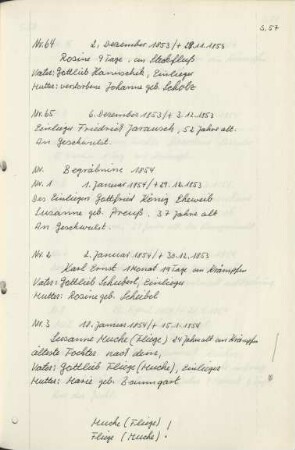 S. 57
Nr. 64 2. Dezember 1853/+ 28.11.1853
Rosine 9 Tage, an Steckfluß
Vater: Gottlieb Hannschek, Einlieger
Mutter: verstorbene Johanne geb. Scholz
Nr. 65 6. Dezember 1853/+ 3.12.1853
Einlieger Friedrich Jarausch, 52 Jahre alt.
An Geschwulst.
Nr. Begräbnisse 1854
Nr. 1 1. Januar 1854/+ 29.12.1853
Des Einlieger Gottfried König Eheweib
Susanne geb. Preuß. 37 Jahre alt
An Geschwulst.
Nr. 2 2. Januar 1854/+ 30.12.1853
Karl Ernst 1 Monat 19 Tage an Krämpfen
Vater: Gottlieb Schubert, Einlieger
Mutter: Rosine geb. Scheibel
Nr. 3 18. Januar 1854/+ 15.1.1854
Susanne Muche (Fliege) 24 Jahre alt an Krämpfen
älteste Tochter nach dem,
Vater: Gottlieb Fliege (Muche), Einlieger
Mutter: Marie geb. Baumgart
Muche (Fliege) !
Fliege (Muche) !